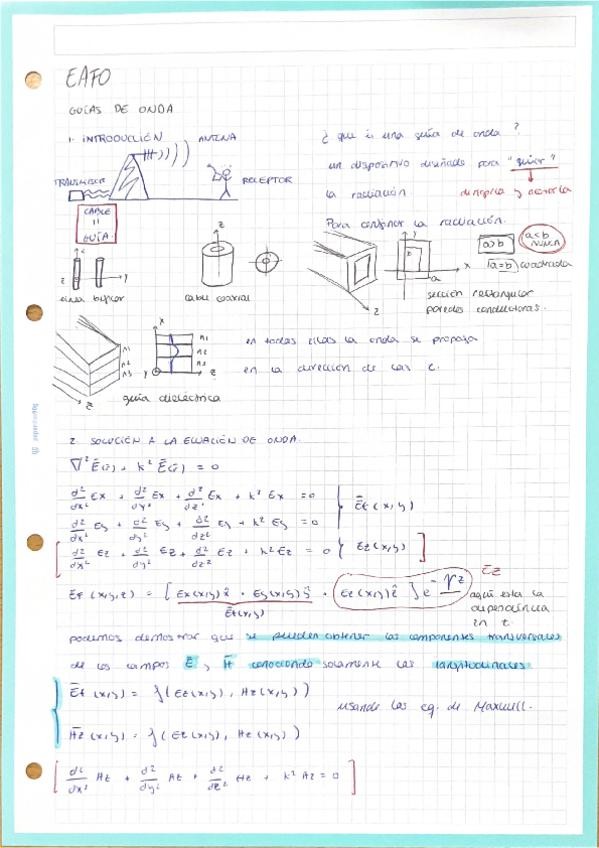 EAFO
GUÍAS DE ONDA
1. INTRODUCCIÓN
ANTENA
TRANSMISOR
RECEPTOR
CABLE
=
GUÍA
¿ que es una guía de onda ?
un dispositivo diseñado para "guiar"
la radiación.
Para confinar la radiación.
a>b
a<b
NUNCA
a=b cuadrada
z
y
línea bifilar
z
cable coaxial
y
x
a
z
sección rectangular
paredes conductoras.
n1
n2
n3
z
x
n1
n2
n3
y
z
guía dieléctrica
en todas ellas la onda se propaga
en la dirección de las z.
2. SOLUCIÓN A LA ECUACIÓN DE ONDA.
∇² Ē(r̄) + k² Ē(r̄) = 0
d²/dx² Ex + d²/dy² Ex + d²/dz² Ex + k² Ex = 0 } Ēt (x,y)
d²/dx² Ey + d²/dy² Ey + d²/dz² Ey + k² Ey = 0
[ d²/dx² Ez + d²/dy² Ez + d²/dz² Ez + k² Ez = 0 { Ez (x,y) ]
(x,y,z) = [ Ex(x,y) x̂ + Ey(x,y) ŷ + Ez(x,y) ẑ ] e^-γz
Ēt(x,y)
Ēz
aquí esta la
dependencia
podemos demostrar que se pueden obtener las componentes transversales
de los campos Ē y H̄ conociendo solamente las longitudinales
Ēt (x,y) = f ( Ez(x,y) , Hz(x,y) )
usando las eq. de Maxwell.
(x,y) = f ( Ez(x,y) , Hz(x,y) )
[ d²/dx² Hz + d²/dy² Hz + d²/dz² Hz + k² Hz = 0 ]